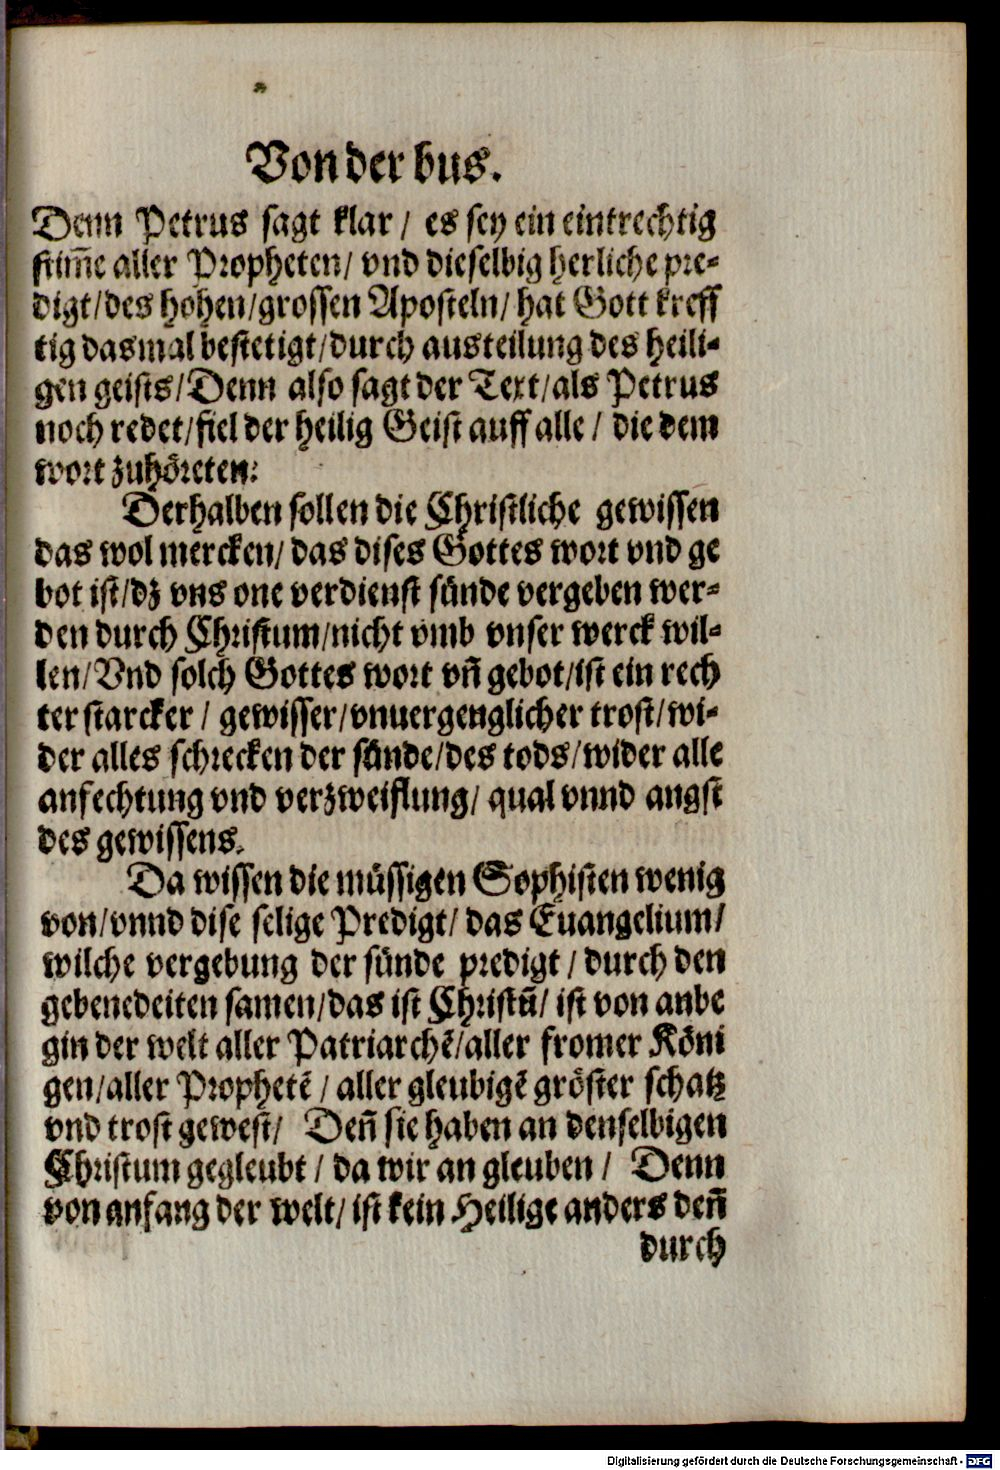 Von der bus.
Denn Petrus sagt klar / es sey ein eintrechtig
stim̃e aller Propheten / vnd dieselbig herliche pre⸗
digt / des hohen / grossen Aposteln / hat Gott kreff
tig dasmal bestetigt / durch austeilung des heili⸗
gen geists / Denn also sagt der Text / als Petrus
noch redet / fiel der heilig Geist auff alle / die dem
wort zuhöreten:
Derhalben sollen die Christliche gewissen
das wol mercken / das dises Gottes wort vnd ge
bot ist / dz vns one verdienst sünde vergeben wer⸗
den durch Christum / nicht vmb vnser werck wil⸗
len / Vnd solch Gottes wort vñ gebot / ist ein rech
ter starcker / gewisser / vnuergenglicher trost / wi⸗
der alles schrecken der sünde / des tods / wider alle
anfechtung vnd verzweiflung / qual vnnd angst
des gewissens.
Da wissen die müssigen Sophisten wenig
von / vnnd dise selige Predigt / das Euangelium /
wilche vergebung der sünde predigt / durch den
gebenedeiten samen / das ist Christũ / ist von anbe
gin der welt aller Patriarchẽ / aller fromer Köni
gen / aller Prophetẽ / aller gleubigẽ gröster schatz
vnd trost gewest / Deñ sie haben an denselbigen
Christum gegleubt / da wir an gleuben / Denn
von anfang der welt / ist kein Heilige anders deñ
durch
Digitalisierung gefördert durch die Deutsche Forschungsgemeinschaft - DFG